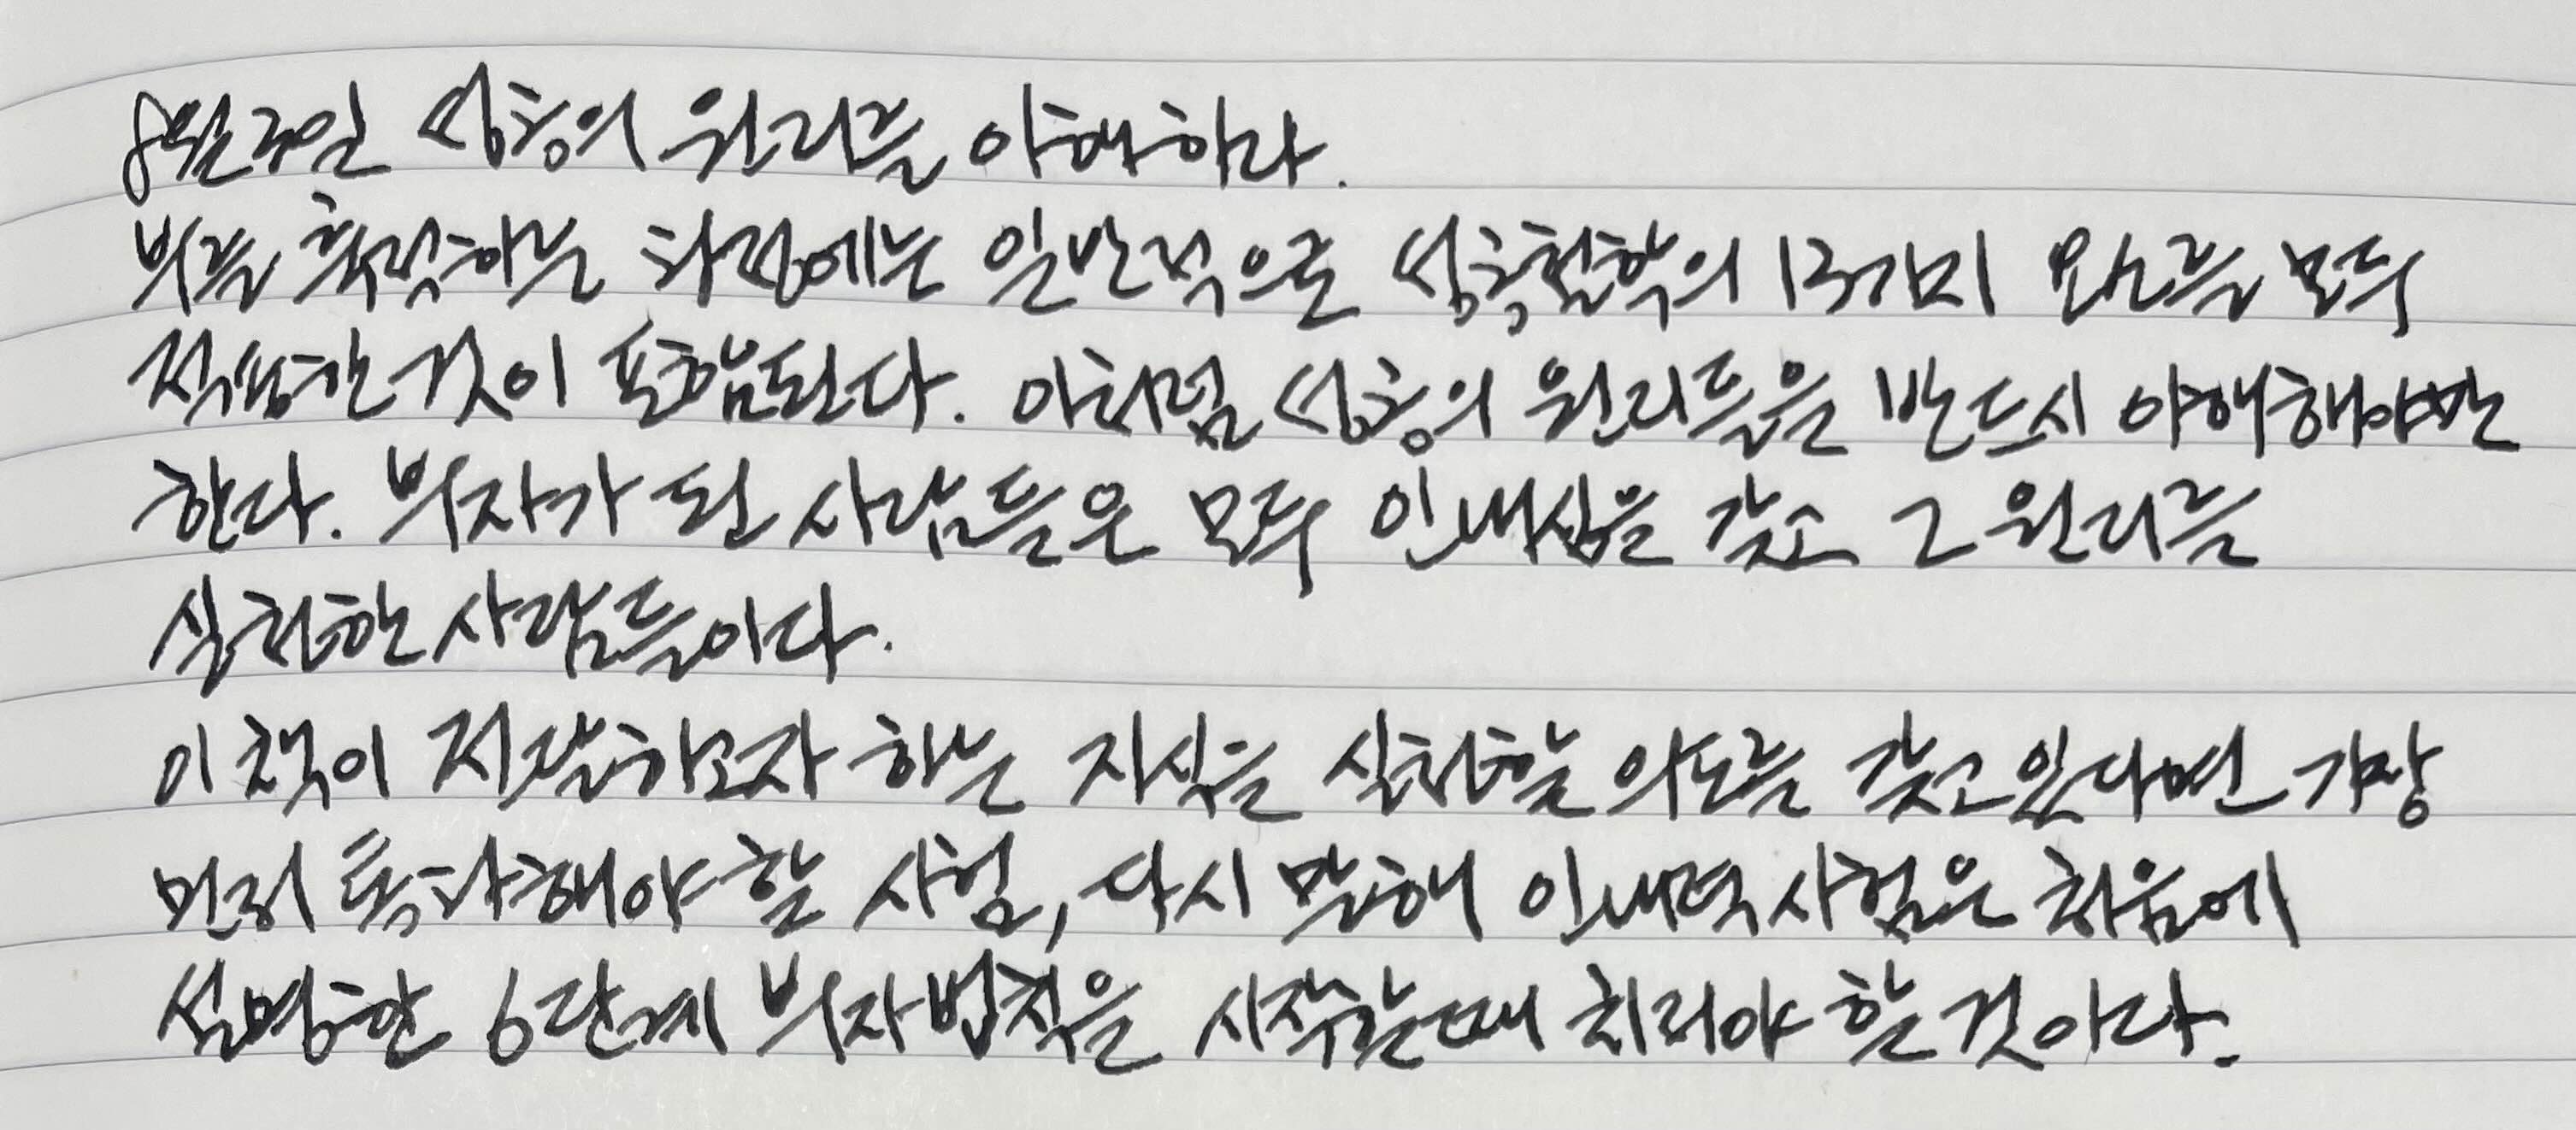 8월 30일 성공의 원리를 이해하라.
부를 축적하는 과정에는 일반적으로 성공철학의 13가지 요소를 모두
적용한 것이 포함된다. 이처럼 성공의 원리들을 반드시 이해해야만
한다. 부자가 된 사람들은 모두 인내심을 갖고 그 원리를
실천한 사람들이다.
이 책이 전달하고자 하는 지식을 실천할 의도를 갖고 있다면 가장
먼저 통과해야 할 시험, 다시 말해 인내력 시험은 처음에
설명한 6단계 부자법칙을 시작할 때 치러야 할 것이다.